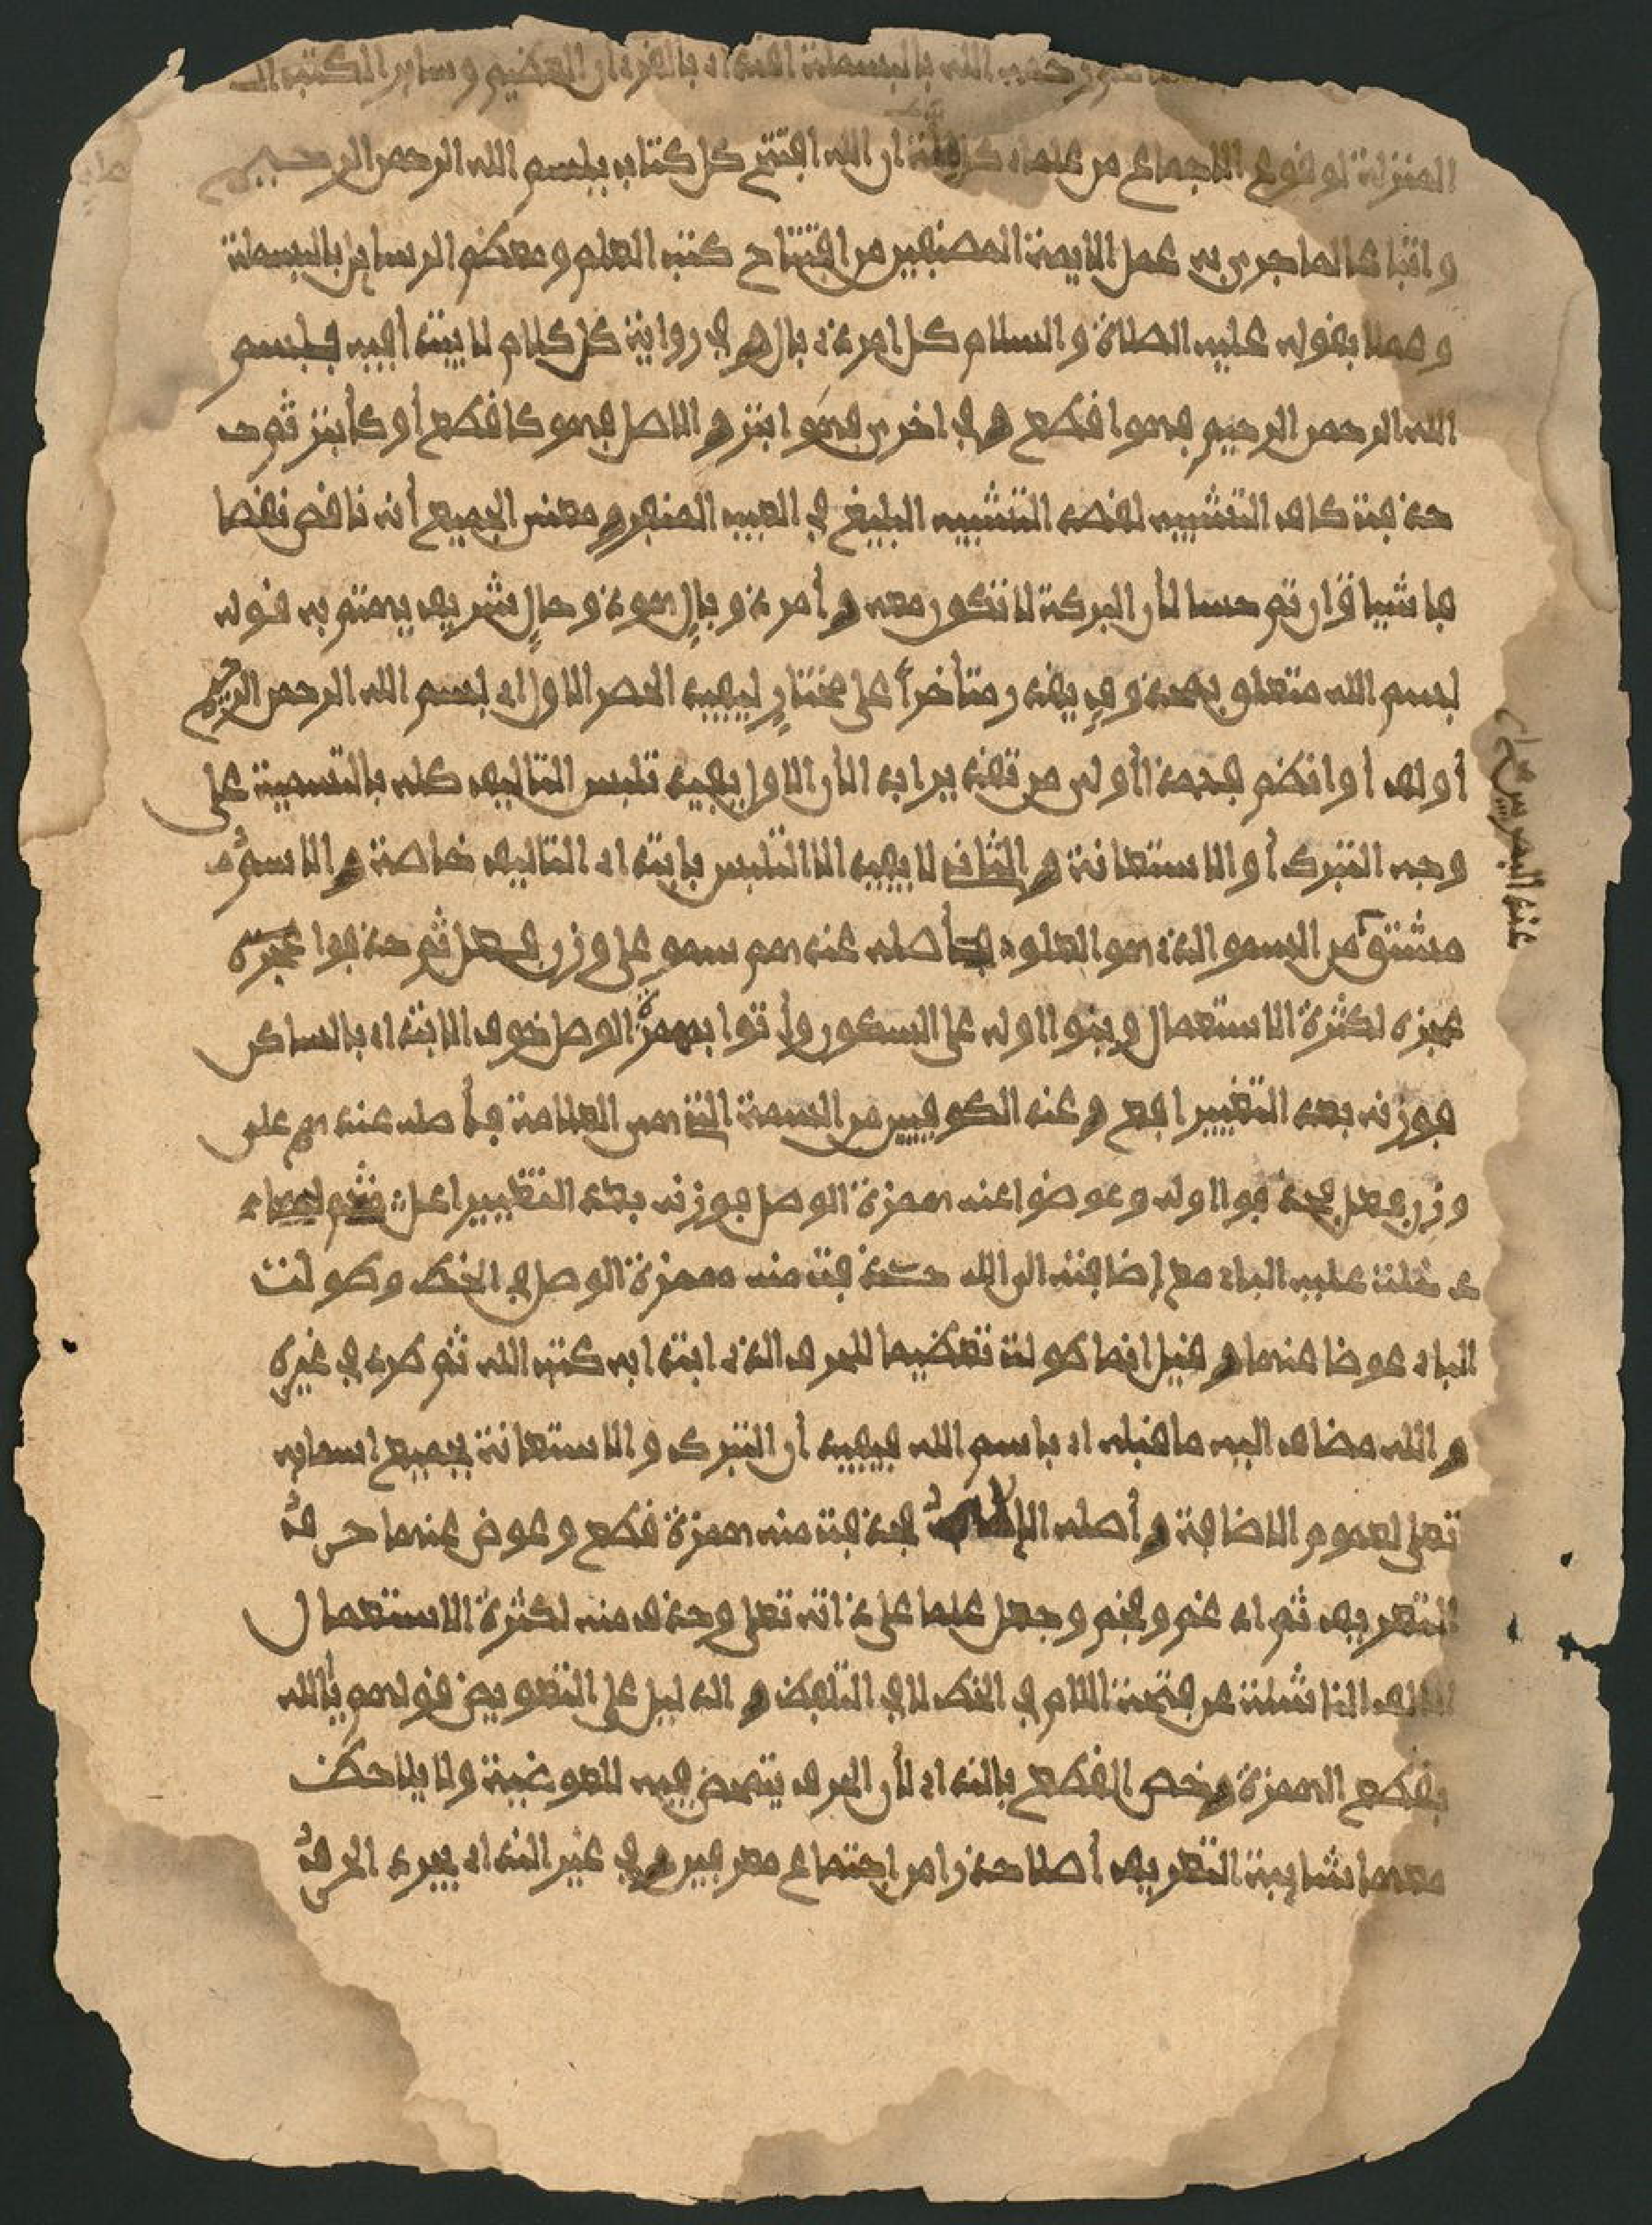 بالبسملة اقتداء بالقرءان العظيم وساير الكتب
المنزلة لوقوع الاجماع من علماء كل ملة ان الله افتتح كل كتاب ببسم الله الرحمن الرحيم
واتباعا لما جرى به عمل الايمة المصنفين من افتتاح كتب العلم ومعظم الرسايل بالبسملة
وعملا بقوله عليه الصلاة والسلام كل امر ذي بال وفي رواية كل كلام لا يبتدأ فيه ببسم
الله الرحمن الرحيم فهو اقطع وفي اخرى فهو ابتر والاصل فهو كاقطع أو كأبتر ثم
حذفت كاف التشبيه لقصد التشبيه البليغ في العيب المنفر ومعنى الجميع أنه ناقص نقصا
فاشيا وان تم حسا لأن البركة لا تكون معه وأمر ذو بال هو ذو حال شريف يهتم به قوله
بسم الله متعلق بمحذوف يقدر متأخراً على مختار ليفيد الحصر الاول اي بسم الله الرحمن الرحيم
أولف أو انظم فهذا أولى من تقدير ابدأ لأن الاول يفيد تلبس التأليف كله بالتسمية على
وجه التبرك أو الاستعانة والثاني لا يفيد الا التلبس بابتداء التأليف خاصة والاسم
مشتق من السمو الذي هو العلو فأصله عندهم سمو على وزن فعل ثم حذفوا عجزه
عجزه لكثرة الاستعمال وبنوا اوله على السكون وأتوا بهمزة الوصل خوف الابتداء بالساكن
فوزنه بعد التغيير افع وعند الكوفيين من السمة التي هي العلامة فأصله عندهم على
وزن فعل فحذفوا اوله وعوضوا عنه همزة الوصل فوزنه بعد التغيير اعل ثم لما
دخلت عليه الباء مع إضافته الى الله حذفت منه همزة الوصل في الخط وطولت
الباء عوضا عنها وقيل انما طولت تعظيما للحرف الذي ابتدأ به كتب الله ثم طرد في غيره
والله مضاف اليه ما قبله اي باسم الله فيفيد أن التبرك والاستعانة بجميع اسمايه
تعلى لعموم الاضافة وأصله الإله فحذفت منه همزة قطع وعوض عنها حرف
التعريف ثم ادغم وفخم وجعل علما على ذاته تعلى وحذف منه لكثرة الاستعمال
الالف الناشئة عن فتحة اللام في الخط لا في التلفظ والدليل على التعويض قولهم يألله
بقطع الهمزة وخص القطع بالنداء لأن الحرف يتمحض فيه للعوضية ولا يلاحظ
معها شايبة التعريف أصلا حذرا من اجتماع معرفين وفي غير النداء يجرى الحرف